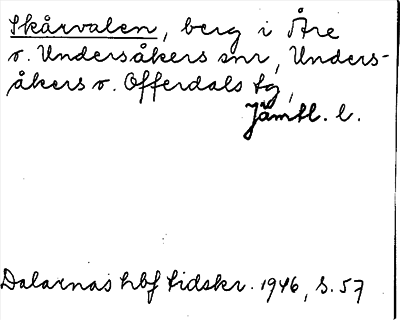 Skårvalen, berg i Åre
o. Undersåkers snr, Unders-
åkers o. Offerdals tg,
Jämtl. l.
Dalarnas hbf tidskr. 1946, s. 57